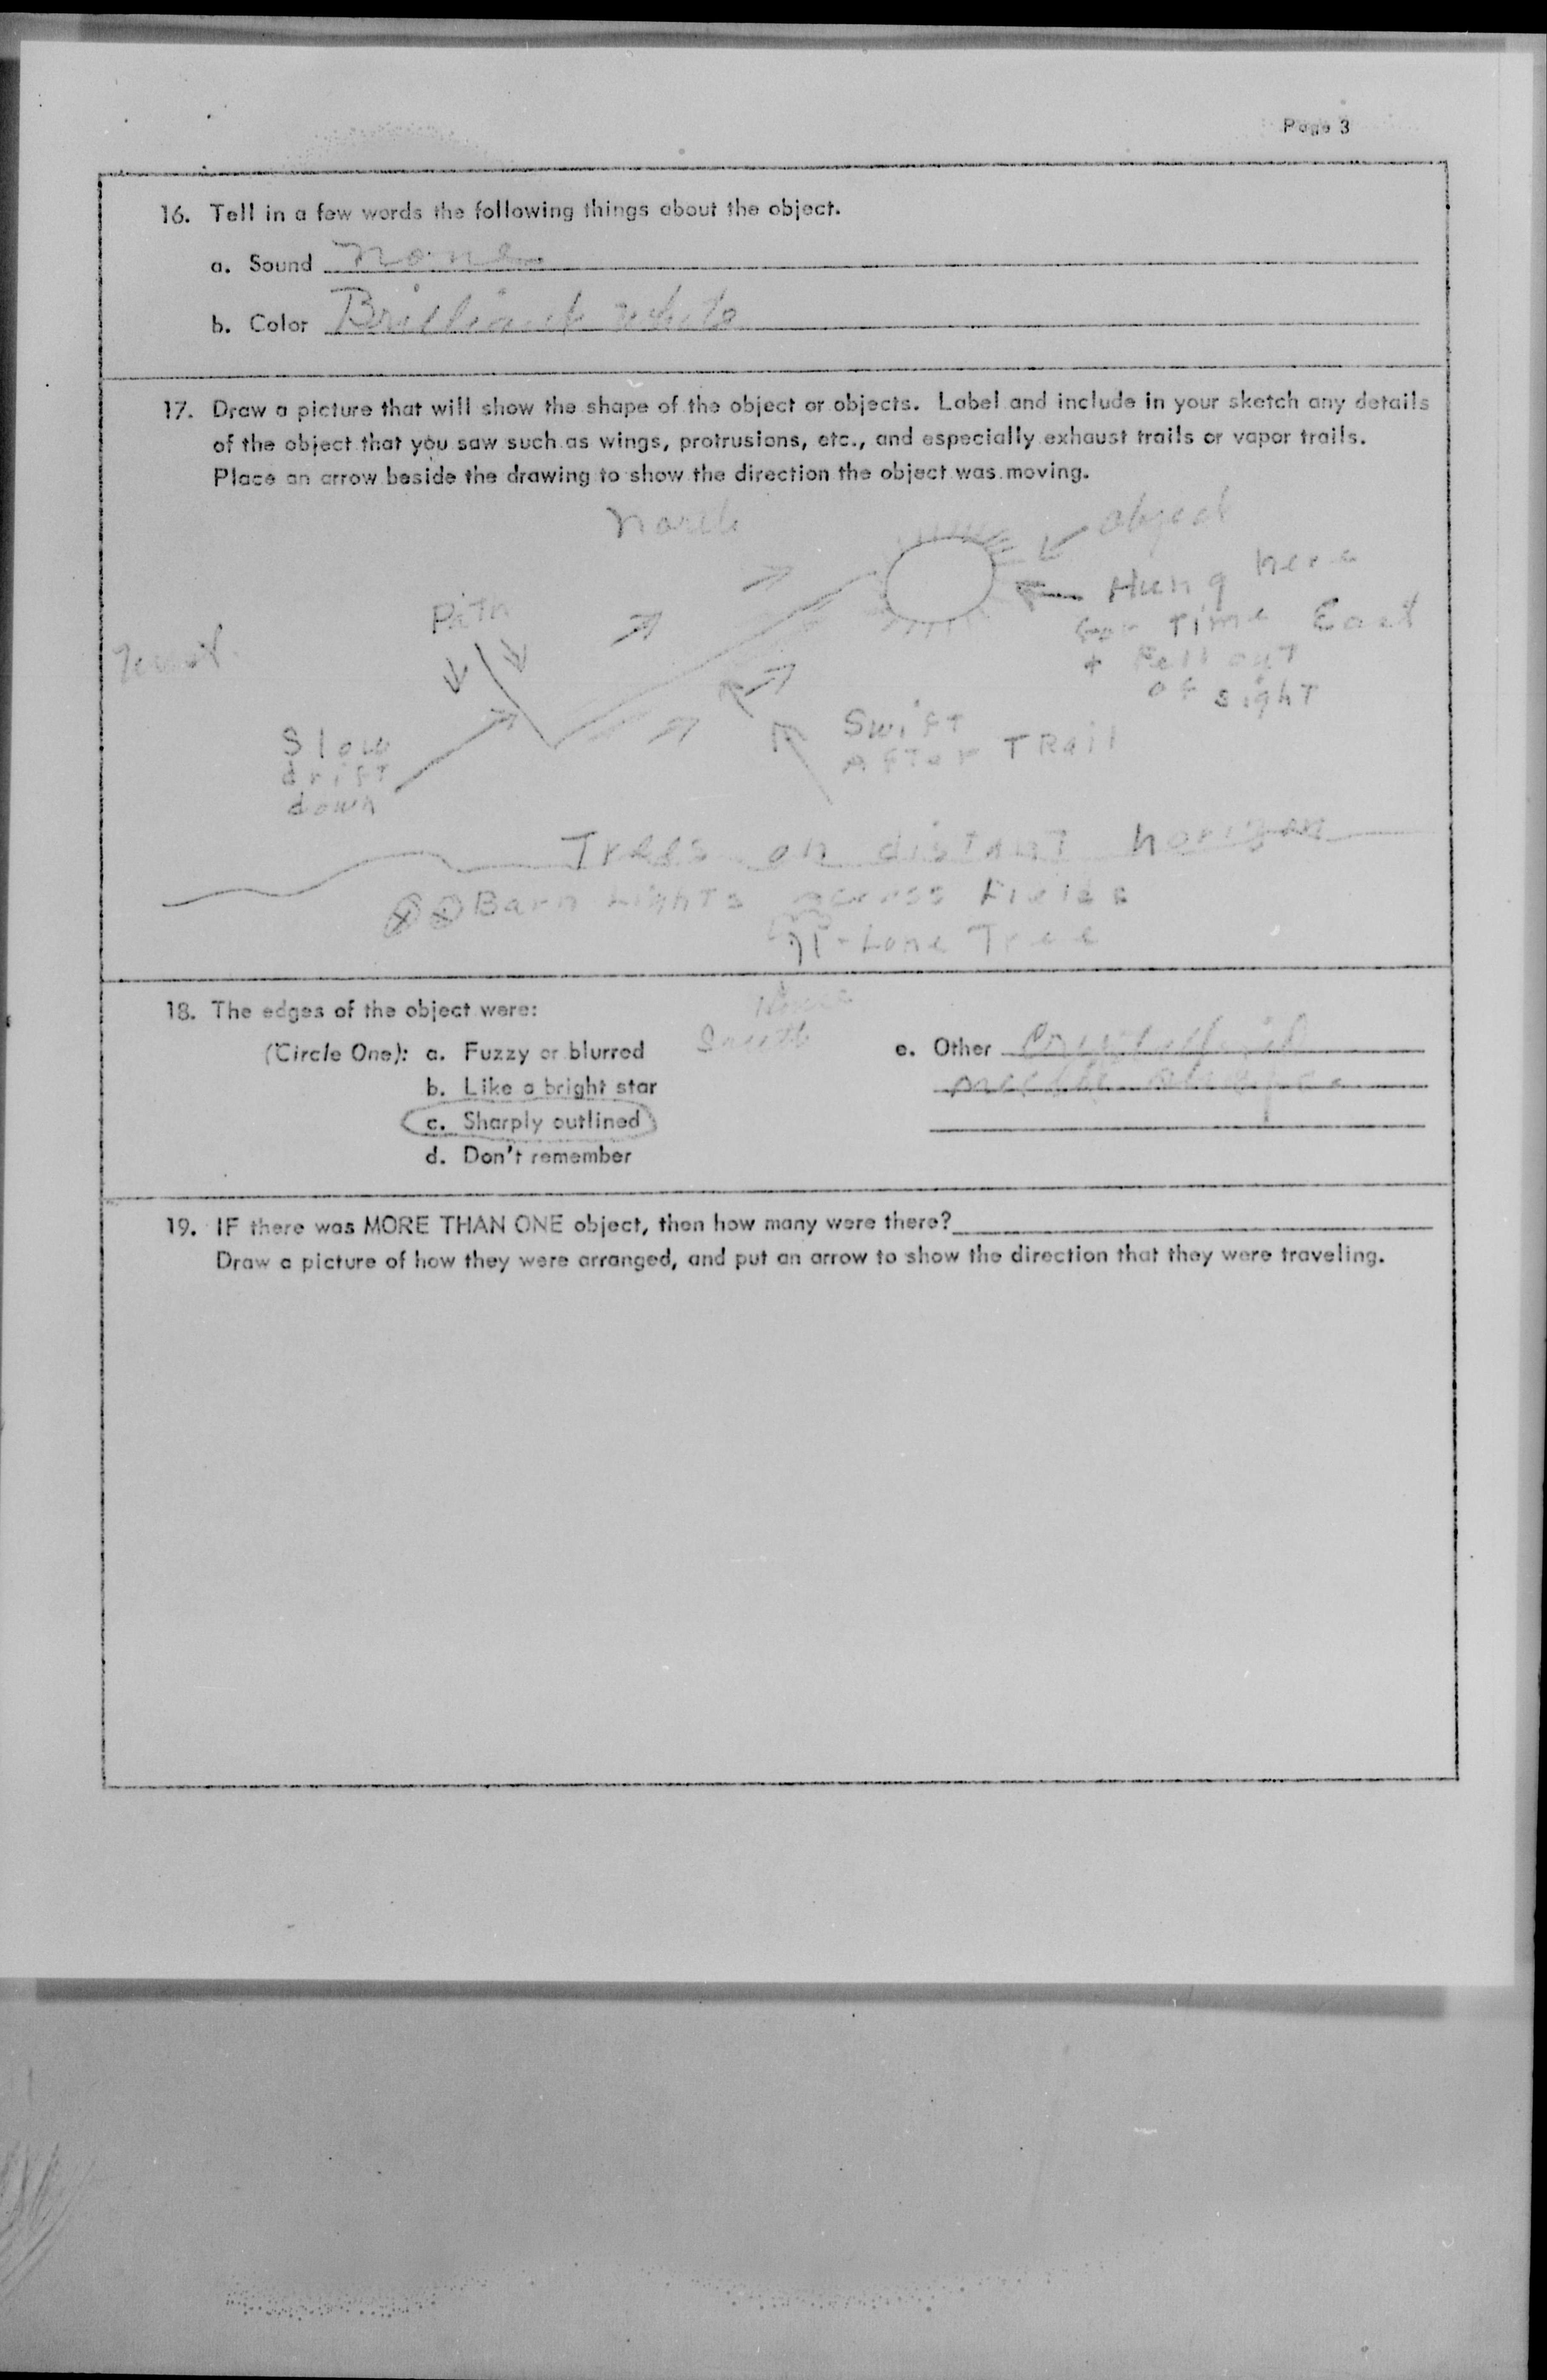 Page 3
16. Tell in a few words the following things about the object.
a. Sound none
b. Color Brilliant white
17. Draw a picture that will show the shape of the object or objects. Label and include in your sketch any details
of the object that you saw such as wings, protrusions, etc., and especially exhaust trails or vapor trails.
Place an arrow beside the drawing to show the direction the object was moving.
North
object
Hung here
Path
for Time East
West
+ Fell out
of sight
Slow
drift
down
Swift
AFTer TRail
Trees on distant horizon
Barn Lights across Fields
Lone Tree
18. The edges of the object were:
(Circle One): a. Fuzzy or blurred
Smooth
e. Other
b. Like a bright star
c. Sharply outlined
d. Don't remember
19. IF there was MORE THAN ONE object, then how many were there?
Draw a picture of how they were arranged, and put an arrow to show the direction that they were traveling.